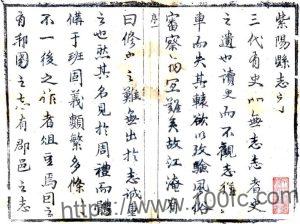 紫陽縣志序
三代有史無志志者史
之遺也讀史而不觀志猶
車而失其轅欲以攷驗風俗
審察難矣故江淹有
曰修史之難無出於志誠
之也然其名見於周禮而體
備于班固義類繁多條
不一後之作者俎焉曰
有邦國之志有郡邑之志